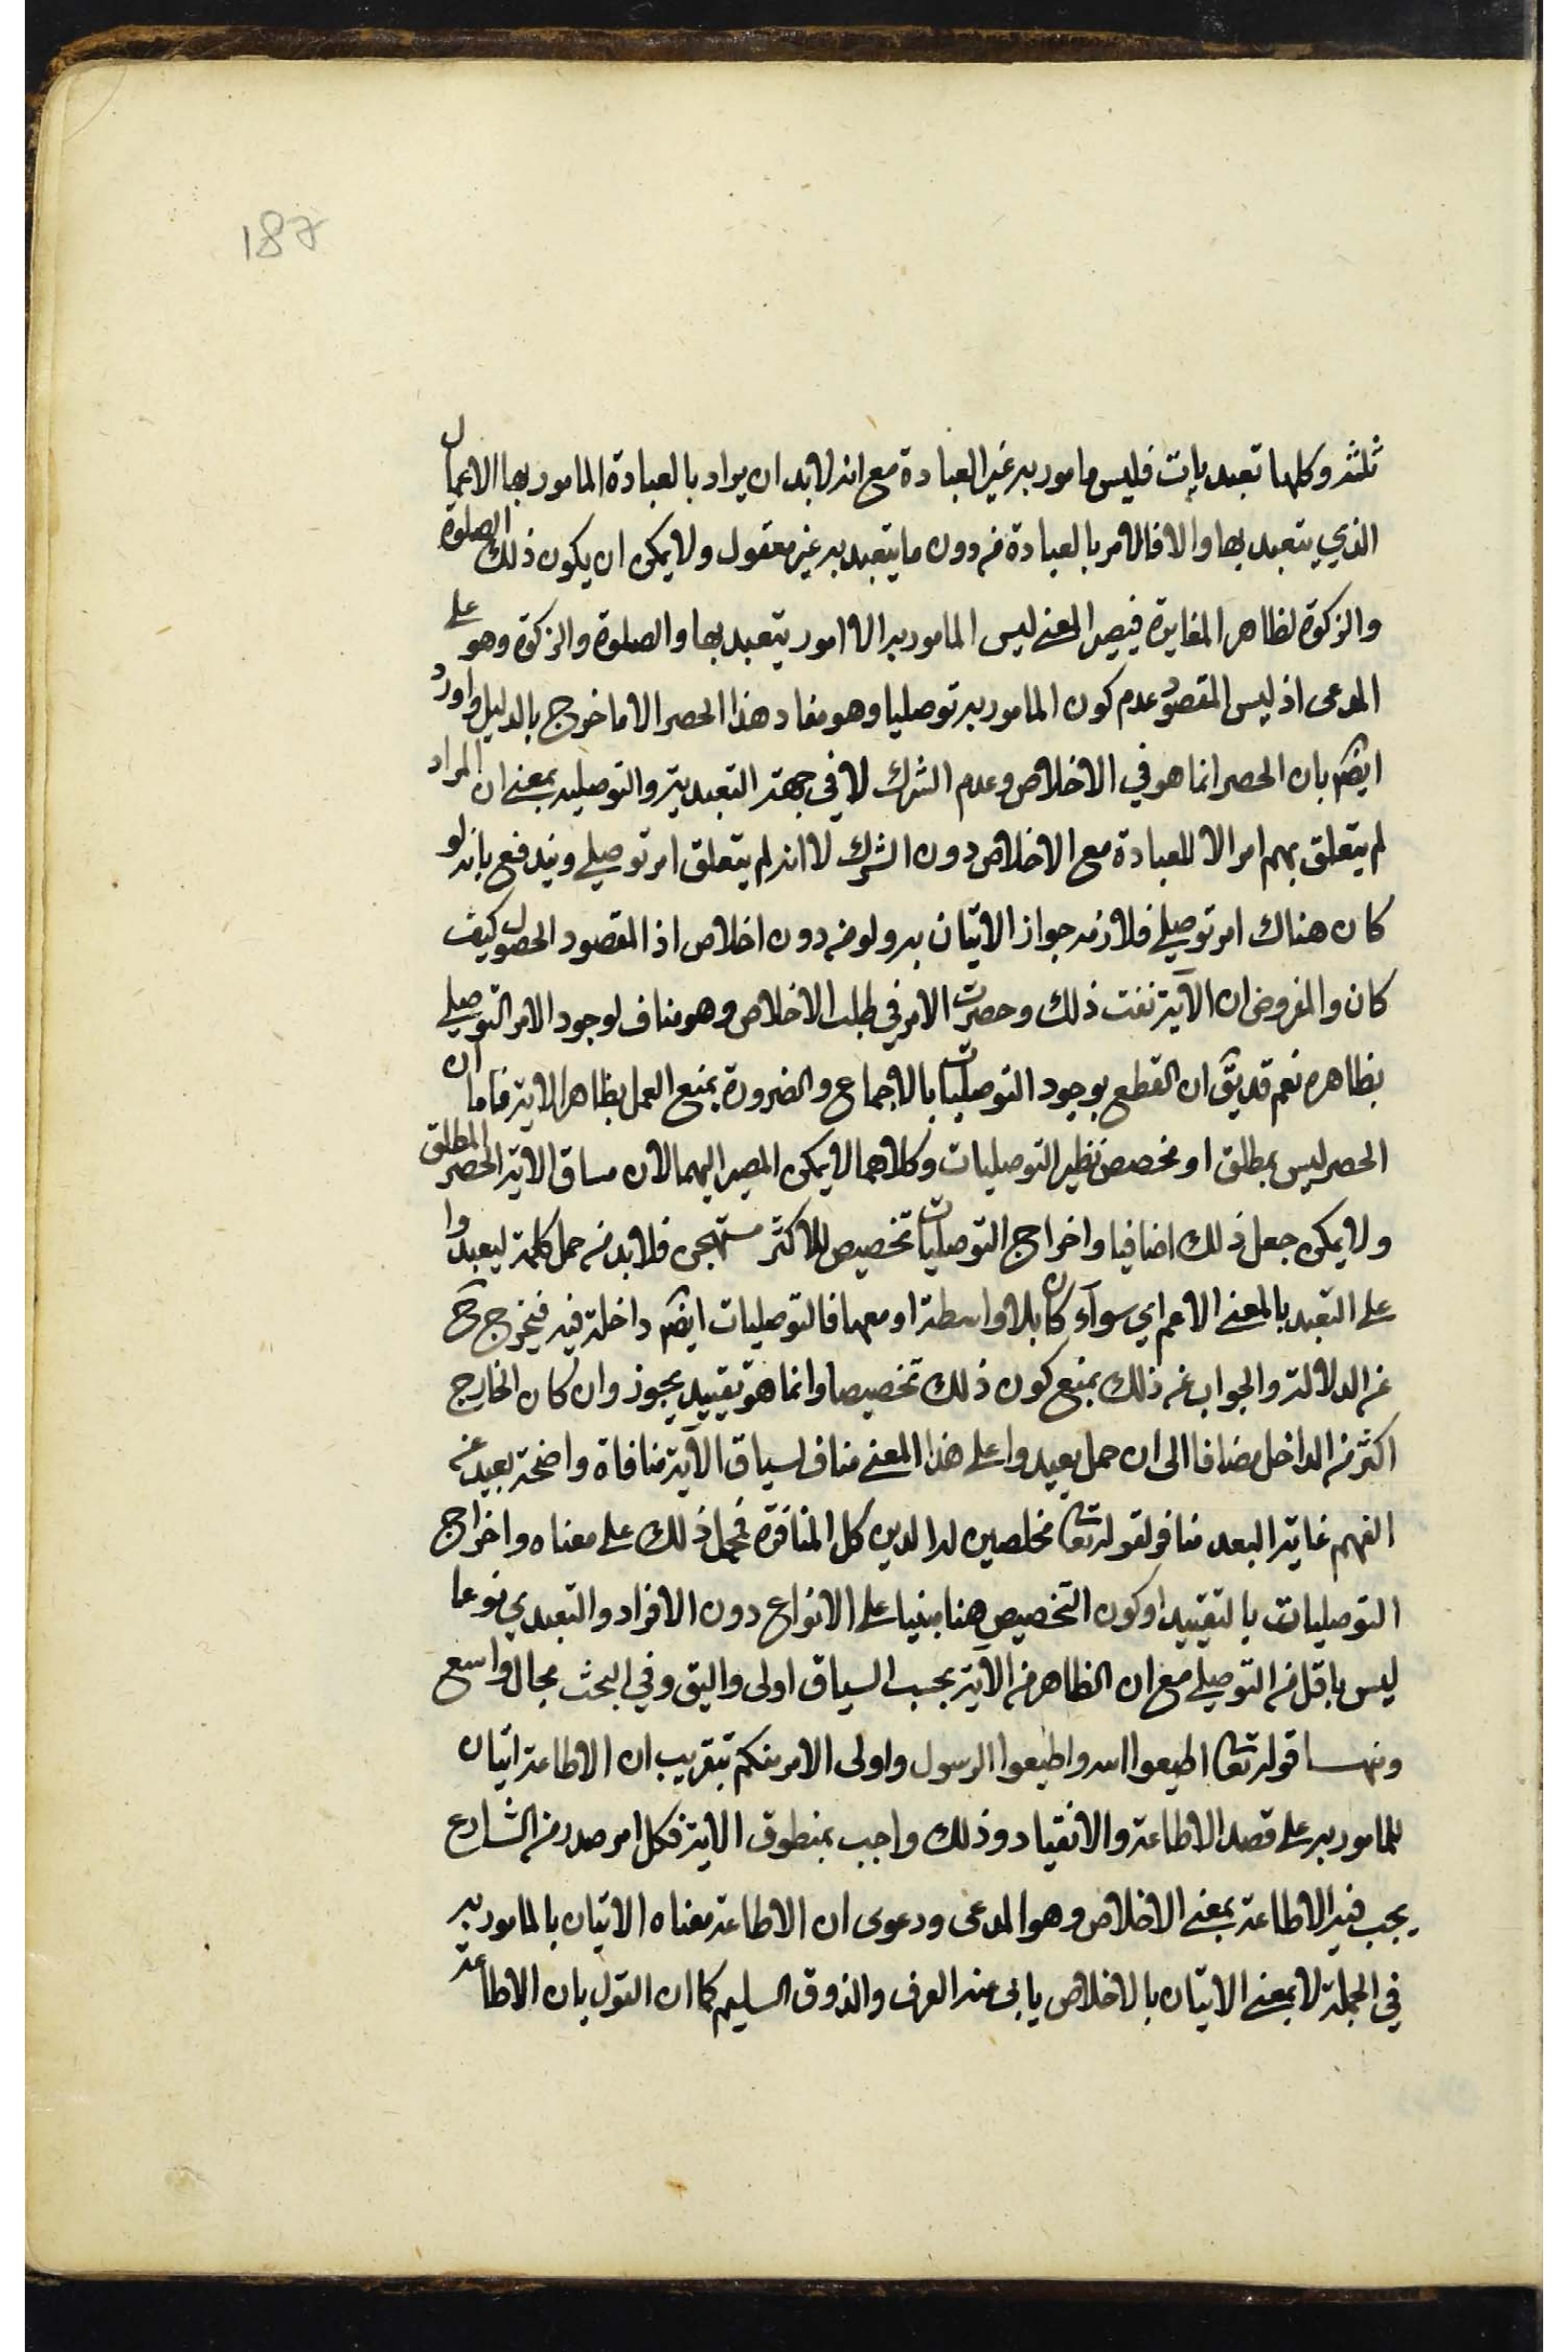 187
ثلثة وكلها تعبديات فليس مامور به غير العبادة مع انه لابد ان يراد بالعبادة المامور بها الاعمال
الذي يتعبد بها والا فالامر بالعبادة من دون ما يتعبد به غير معقول ولا يمكن ان يكون ذلك الصلوة
والزكوة لظاهر المغايرة فيصير المعنى ليس المامور به الا امور يتعبد بها والصلوة والزكوة وهو على
المدعى اذ ليس المقصود عدم كون المامور به توصليا وهو مفاد هذا الحصر الا ما خرج بالدليل واورد
ايضا بان الحصر انما هو في الاخلاص وعدم الشرك لا في جهة التعبدية والتوصلية بمعنى ان المراد
لم يتعلق بهم امر الا للعبادة مع الاخلاص دون الشرك لا انه لم يتعلق امر توصلي ويندفع بانه لو
كان هناك امر توصلي فلازمه جواز الاتيان به ولو من دون اخلاص اذ المقصود الحصول كيف
كان والمفروض ان الآية نفت ذلك وحصرت الامر في طلب الاخلاص وهو مناف لوجود الامر التوصلي
بظاهره نعم قد يق ان القطع بوجود التوصليات بالاجماع والضرورة يمنع العمل بظاهر الاية فاما ان
الحصر ليس بمطلق او مخصص نظير التوصليات وكلاهما لا يمكن المصير اليهما لان مساق الاية الحصر المطلق
ولا يمكن جعل ذلك اضافيا واخراج التوصليات تخصيص للاكثر مستهجن فلابد من حمل كلمة ليعبدوا
على التعبد بالمعنى الاعم اي سوآء كان بلا واسطة او معها فالتوصليات ايضا داخلة فيه فيخرج ح
عن الدلالة والجواب عن ذلك بمنع كون ذلك تخصيصا وانما هو تقييد يجوز وان كان الخارج
اكثر من الداخل مضافا الى ان حمل يعبدوا على هذا المعنى مناف لسياق الآية منافاة واضحة بعيد عن
الفهم غاية البعد منافر لقوله تعا مخلصين له الدين كل المنافرة فحمل ذلك على معناه واخراج
التوصليات بالتقييد او كون التخصيص هنا مبنيا على الانواع دون الافراد والتعبدي نوعا
ليس باقل من التوصلي مع ان الظاهر من الآية بحسب السياق اولى واليق وفي البحث مجال واسع
ومنها قوله تعا اطيعوا الله واطيعوا الرسول واولى الامر منكم بتقريب ان الاطاعة اتيان
للمامور به على قصد الاطاعة والانقياد وذلك واجب بمنطوق الاية فكل امر صدر من الشارع
يجب فيه الاطاعة بمعنى الاخلاص وهو المدعى ودعوى ان الاطاعة معناه الاتيان بالمامور به
في الجملة لا بمعنى الاتيان بالاخلاص يابى عنه العرف والذوق السليم كما ان القول بان الاطاعة